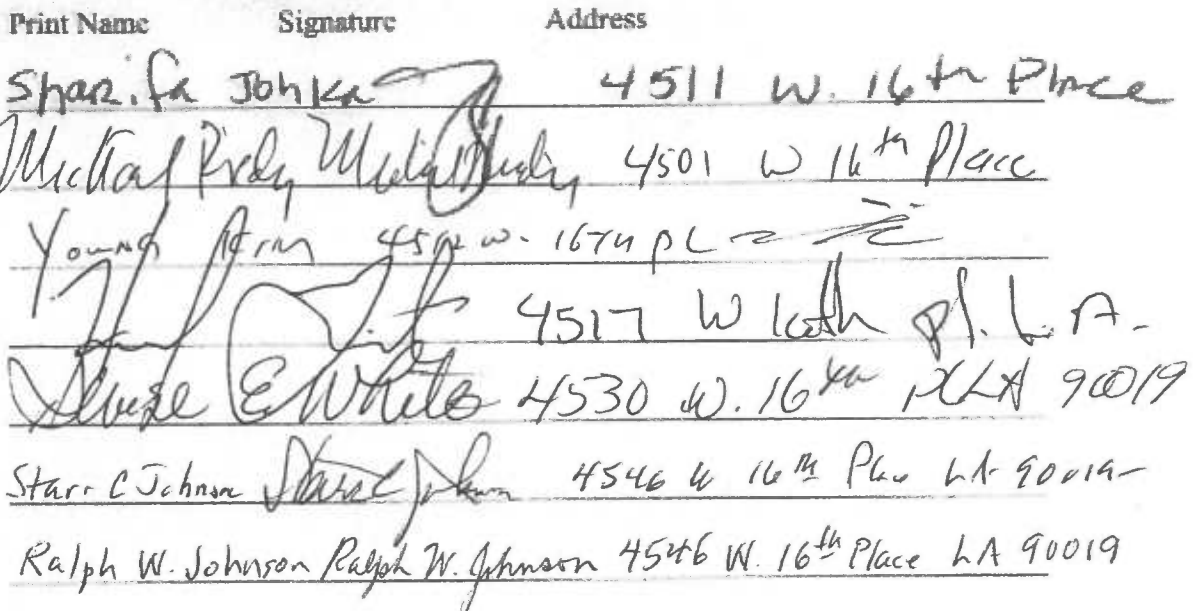 Print Name Signature Address
Sharifa Johka 4511 W. 16th Place
Michael 4501 W 16th Place
Young W. 16TH PL
4517 W 16th Pl. L.A.
E White 4530 W. 16th Pl LA 90019
Starr C Johnson Starr C Johnson 4546 W 16th Place LA 90019
Ralph W. Johnson Ralph W. Johnson 4546 W. 16th Place LA 90019